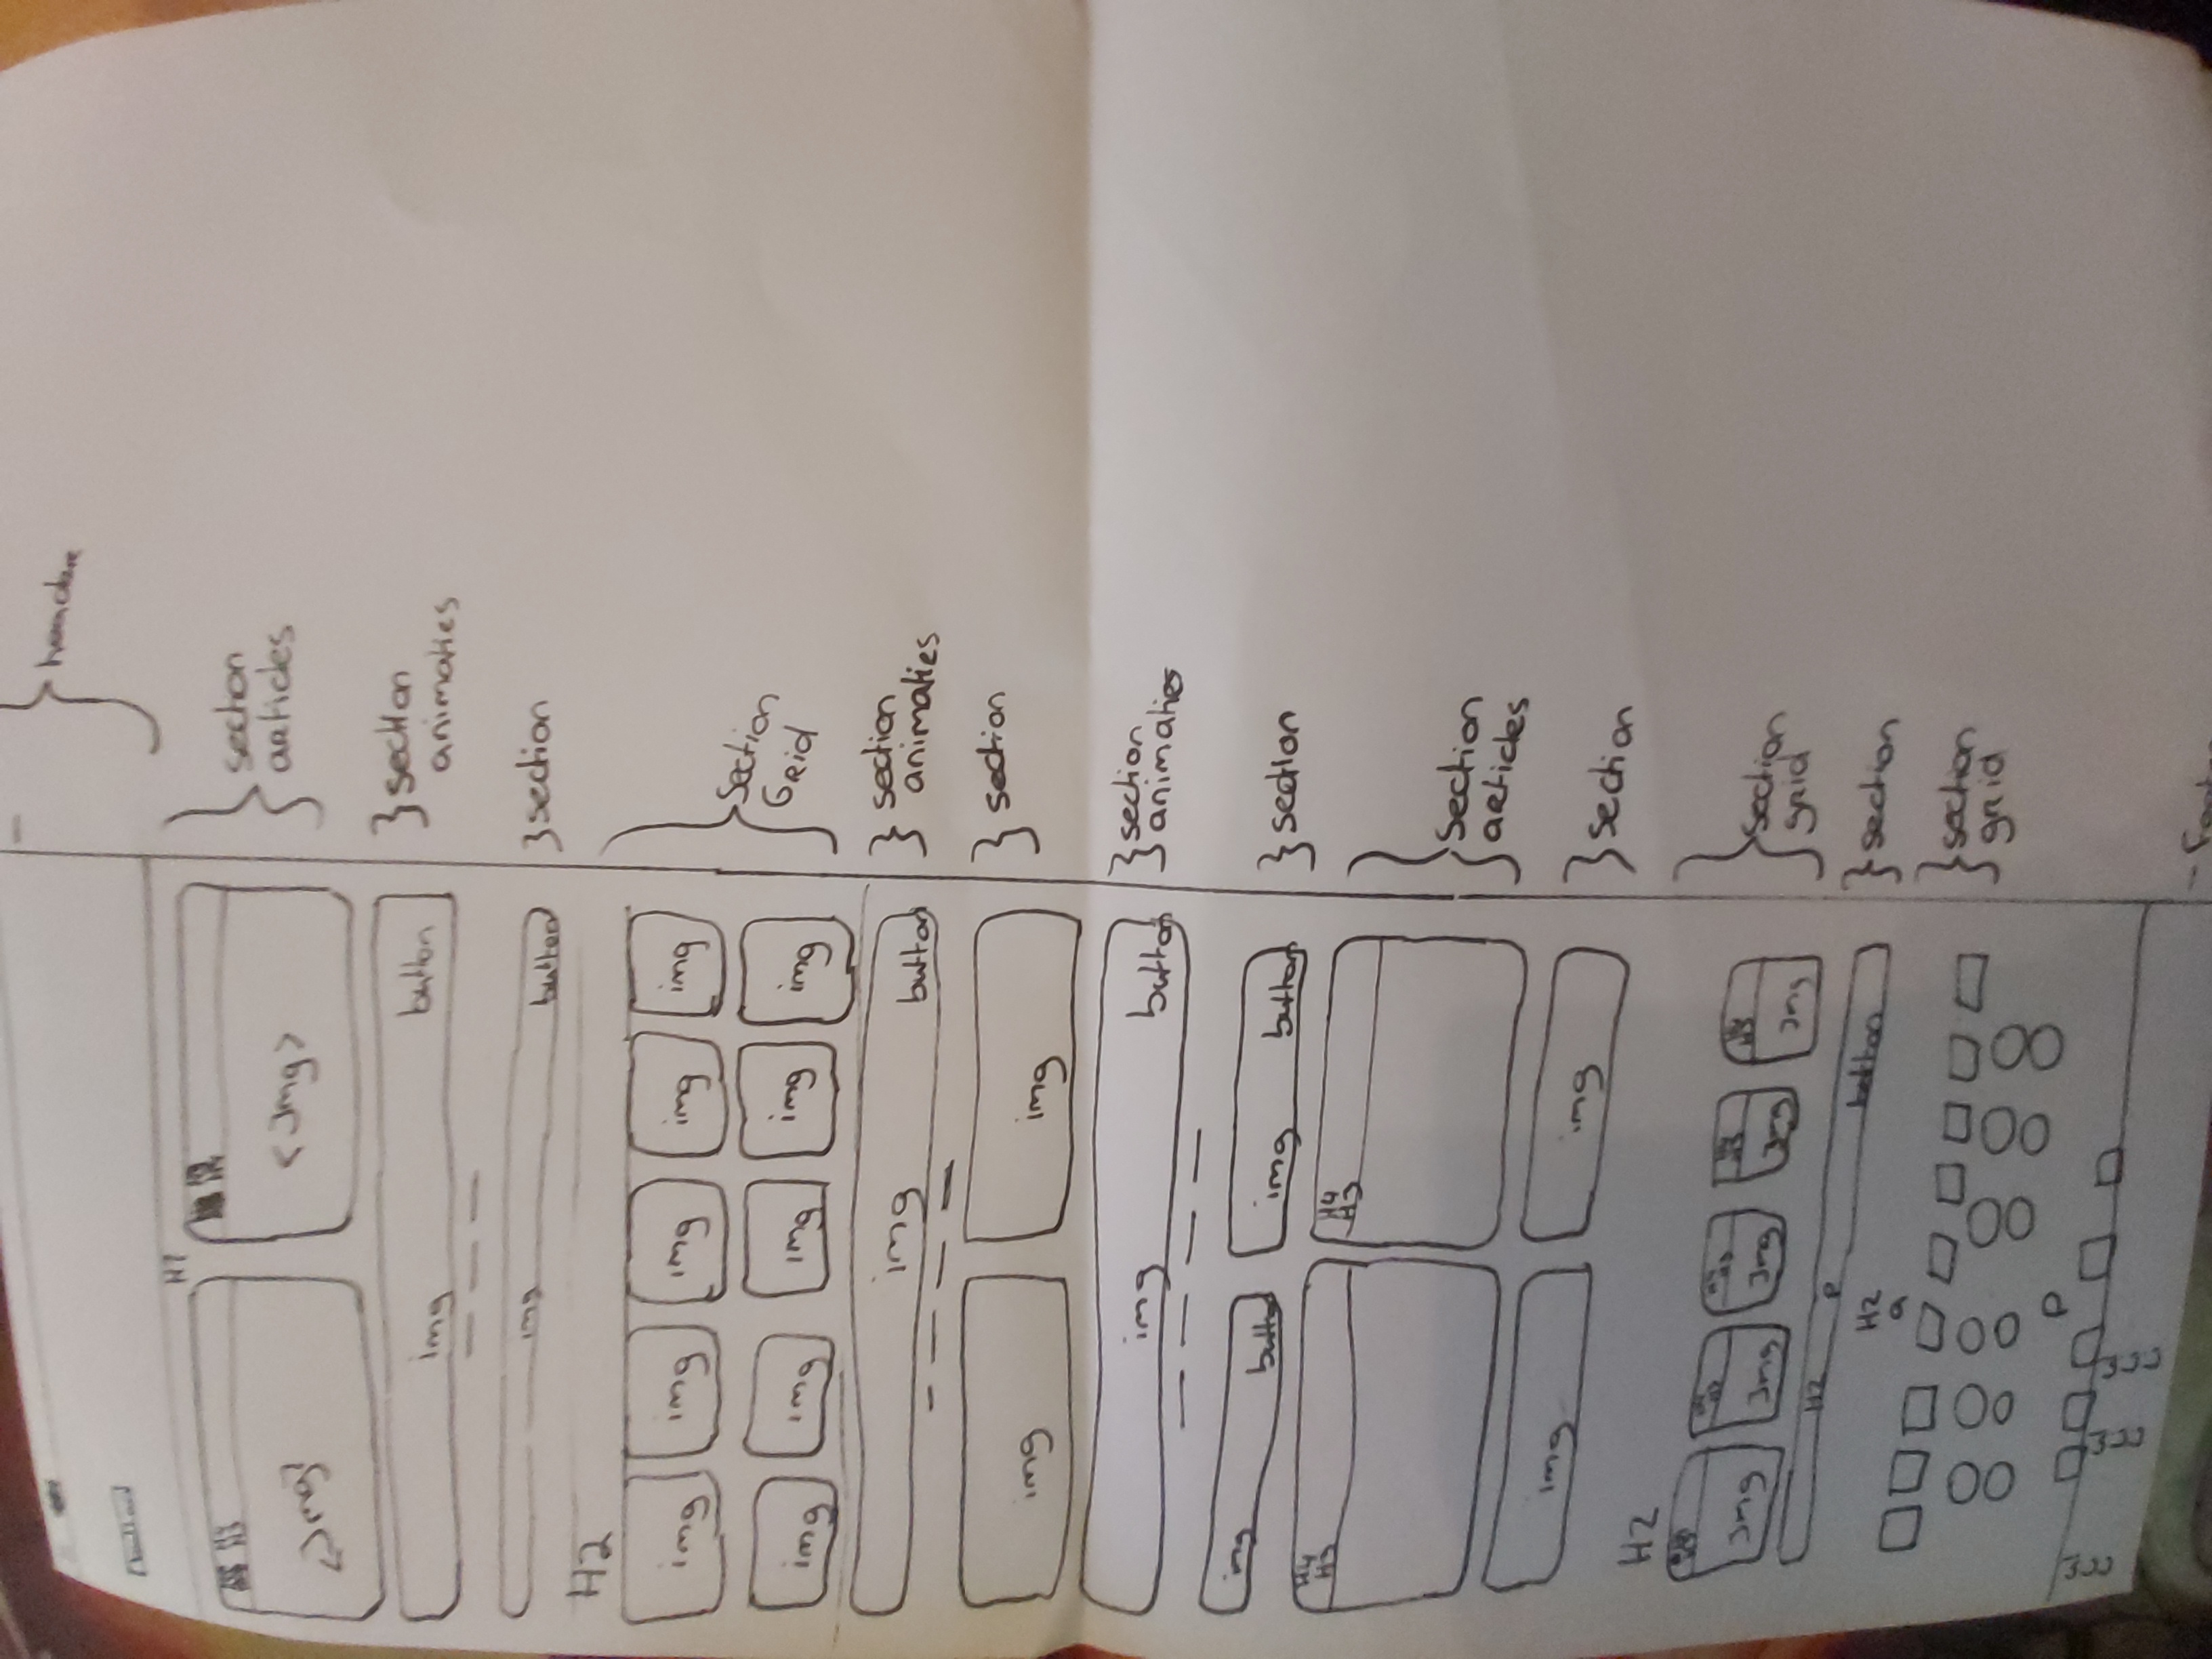 H1
section
articles
<Img>
<Img>
img button
section
animaties
img button
section
H2
img img img img img
img img img img img
Section
GRid
img button
section
animaties
img img
section
img button
section
animaties
img button img button
section
H4 H4
H3 H3
section
articles
img img
section
H2
Img Img Img Img Img
section
grid
H2 P button
section
H2
a
section
grid
P